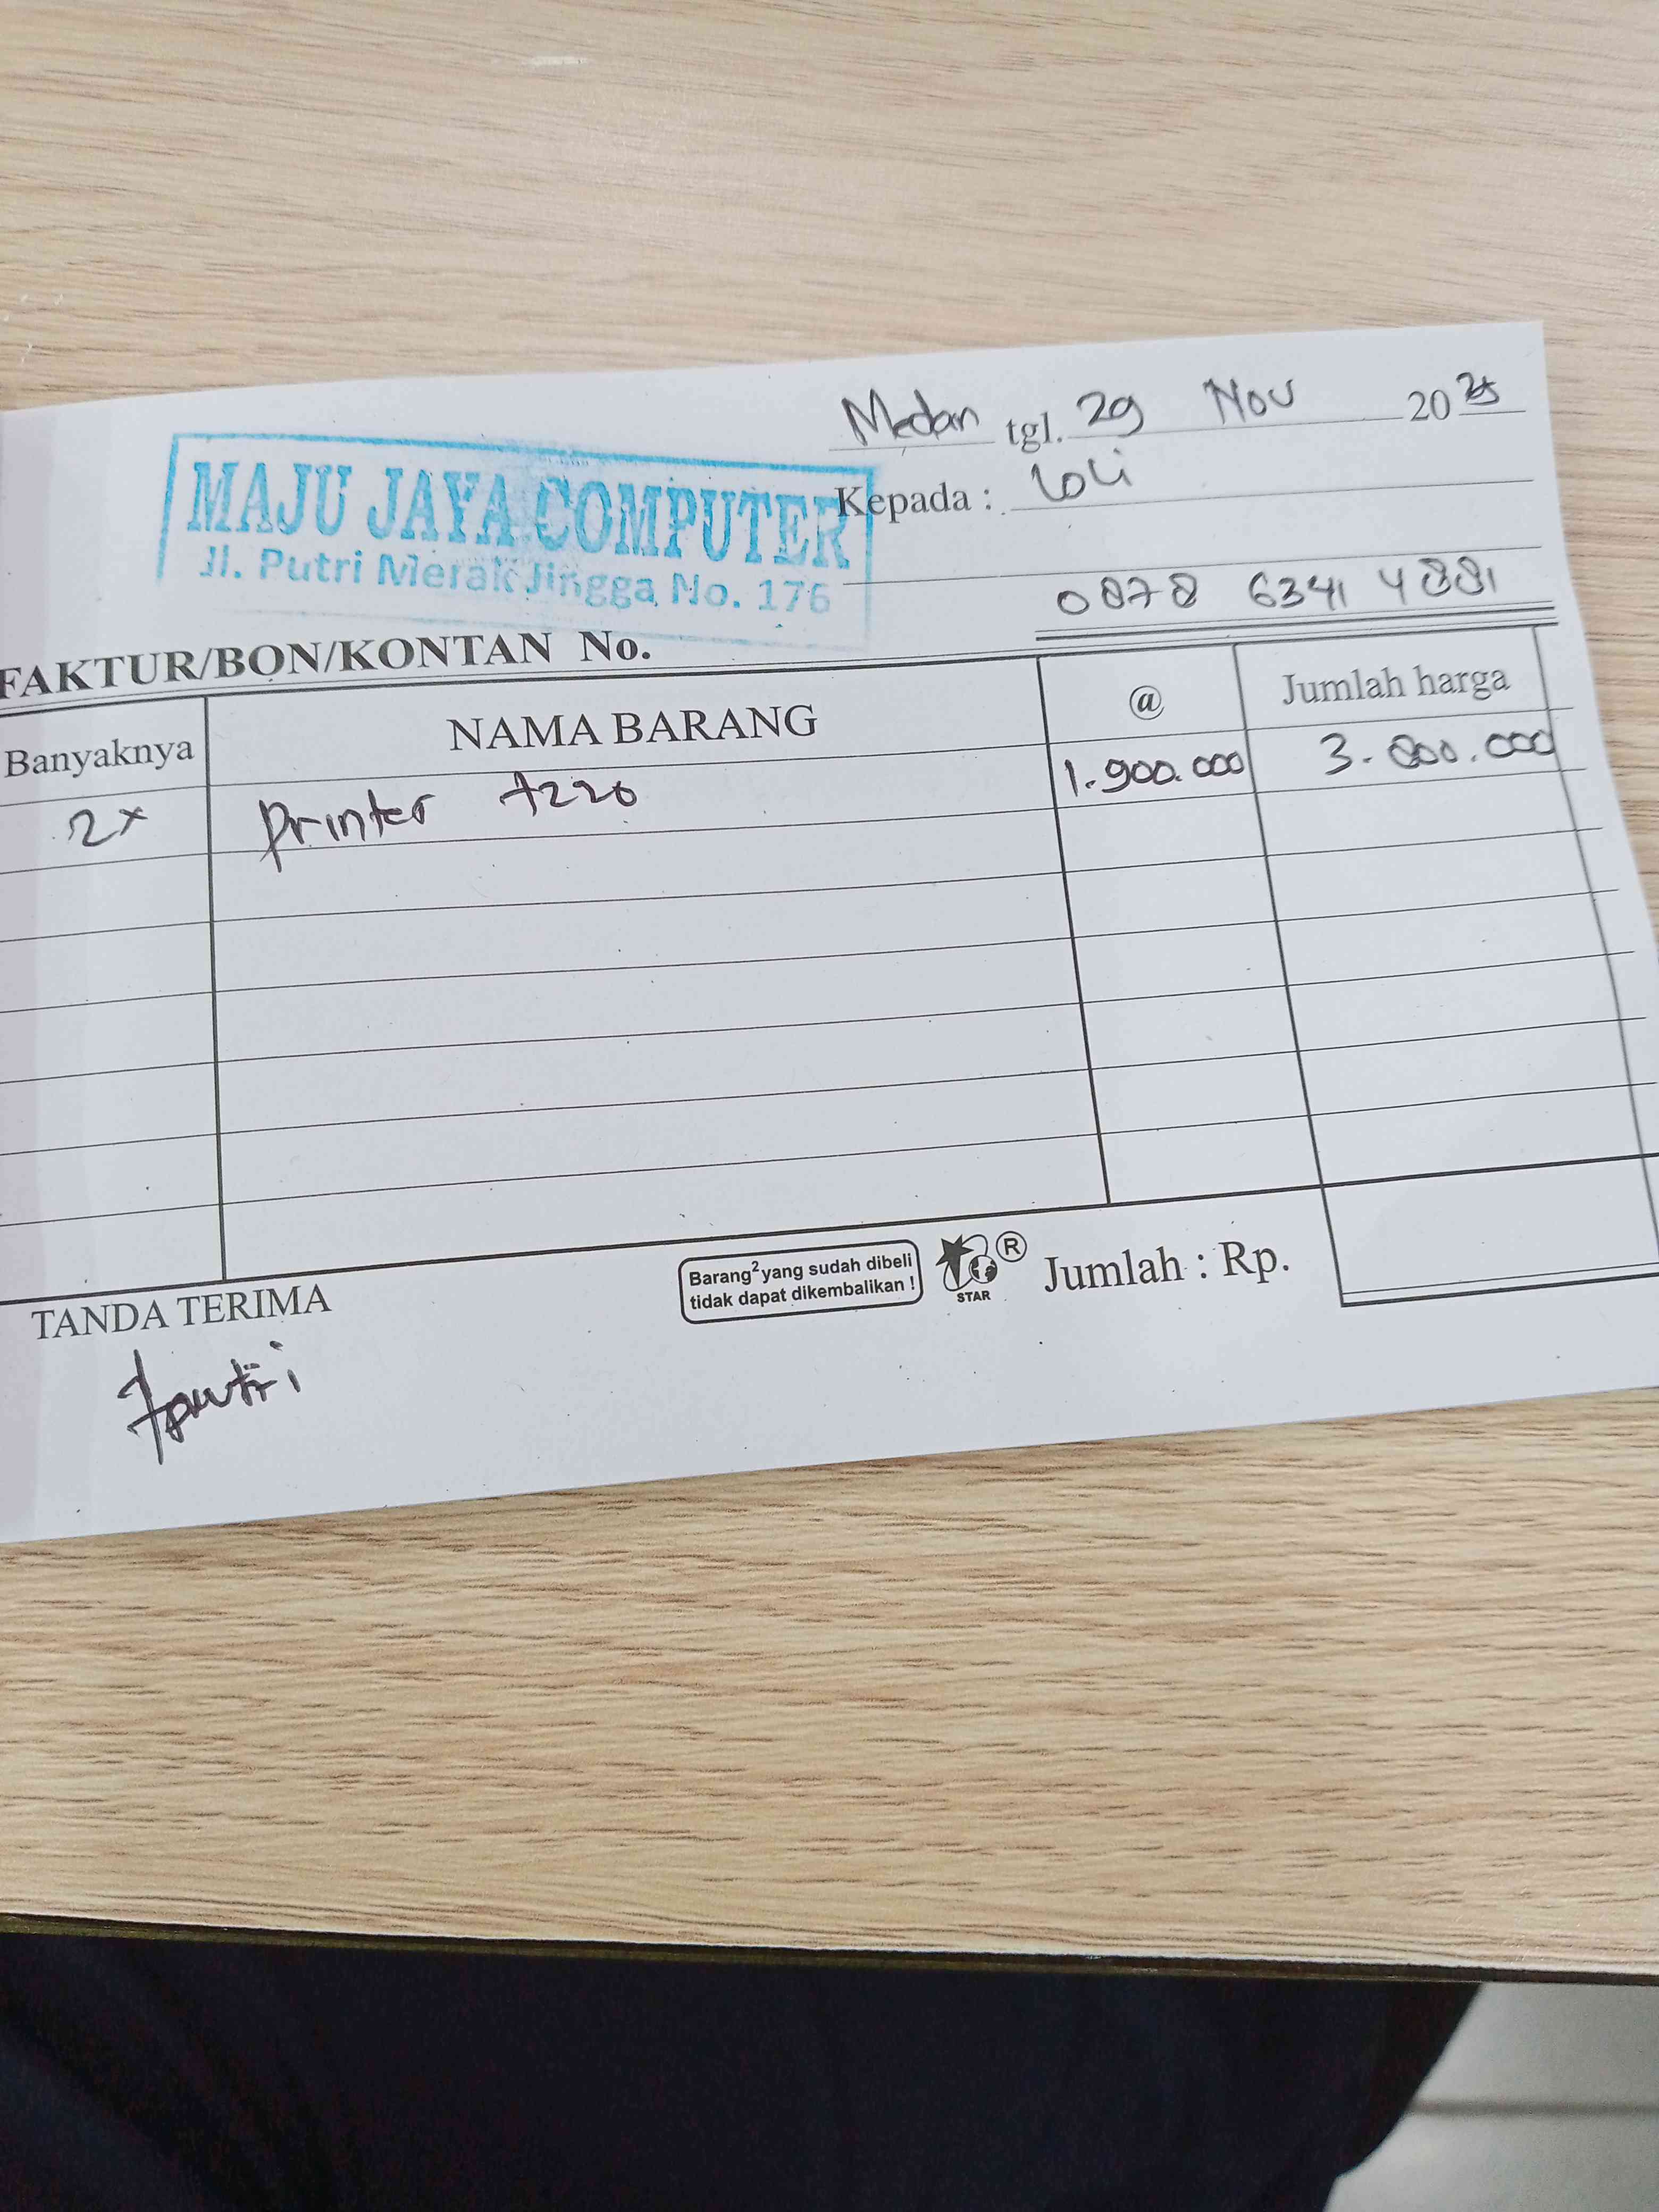 Medan tgl. 29 Nov 2025
MAJU JAYA COMPUTER
Jl. Putri Merak Jingga No. 176
Kepada : Loli
0878 6341 4881
FAKTUR/BON/KONTAN No.
Banyaknya NAMA BARANG @ Jumlah harga
2x Printer 1.900.000 3.800.000
Barang² yang sudah dibeli
tidak dapat dikembalikan !
STAR
R
Jumlah : Rp.
TANDA TERIMA
putri